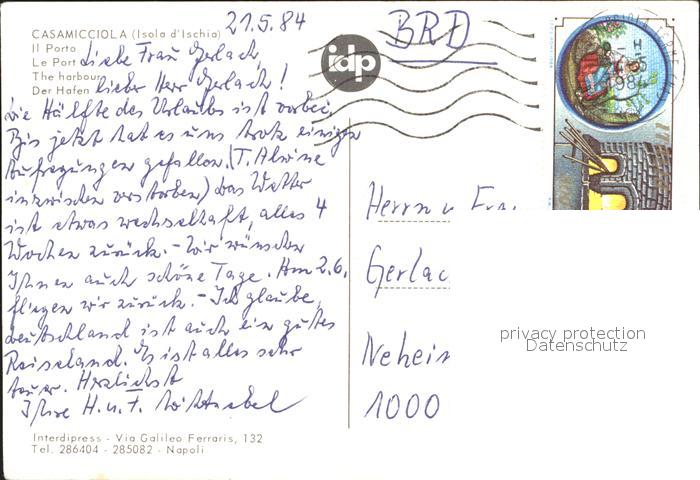 CASAMICCIOLA (Isola d'Ischia)
Il Porto
Le Port
The harbour
Der Hafen
21.5.84
Liebe Frau Gerlach,
lieber Herr Gerlach!
die Hälfte des Urlaubs ist vorbei.
Bis jetzt hat es uns trotz einigen
Aufregungen gefallen. (T. Alwine
inzwischen verstorben) das Wetter
ist etwas wechselhaft, alles 4
Wochen zurück. - Wir wünschen
Ihnen auch schöne Tage. Am 2.6.
fliegen wir zurück. - Ich glaube,
Deutschland ist auch ein gutes
Reiseland. Es ist alles sehr
teuer. Herzlichst
Ihre H. u. F.
Interdipress - Via Galileo Ferraris, 132
Tel. 286404 - 285082 - Napoli
idp
BRD
Herrn u Frau
Gerlac
Neheim
1000
privacy protection
Datenschutz